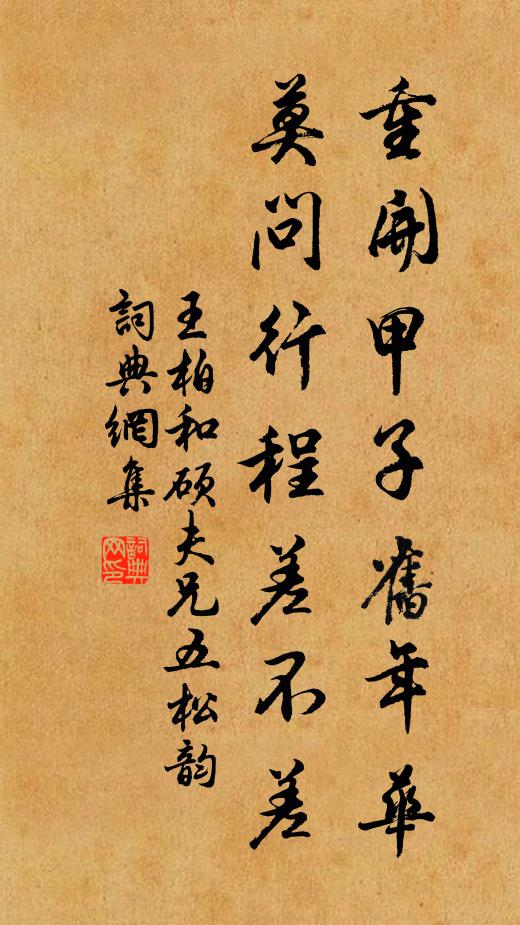 重開甲子舊年華
莫問行程差不差
王柏和碩夫兄五松韵
詞典網集
詞典網印